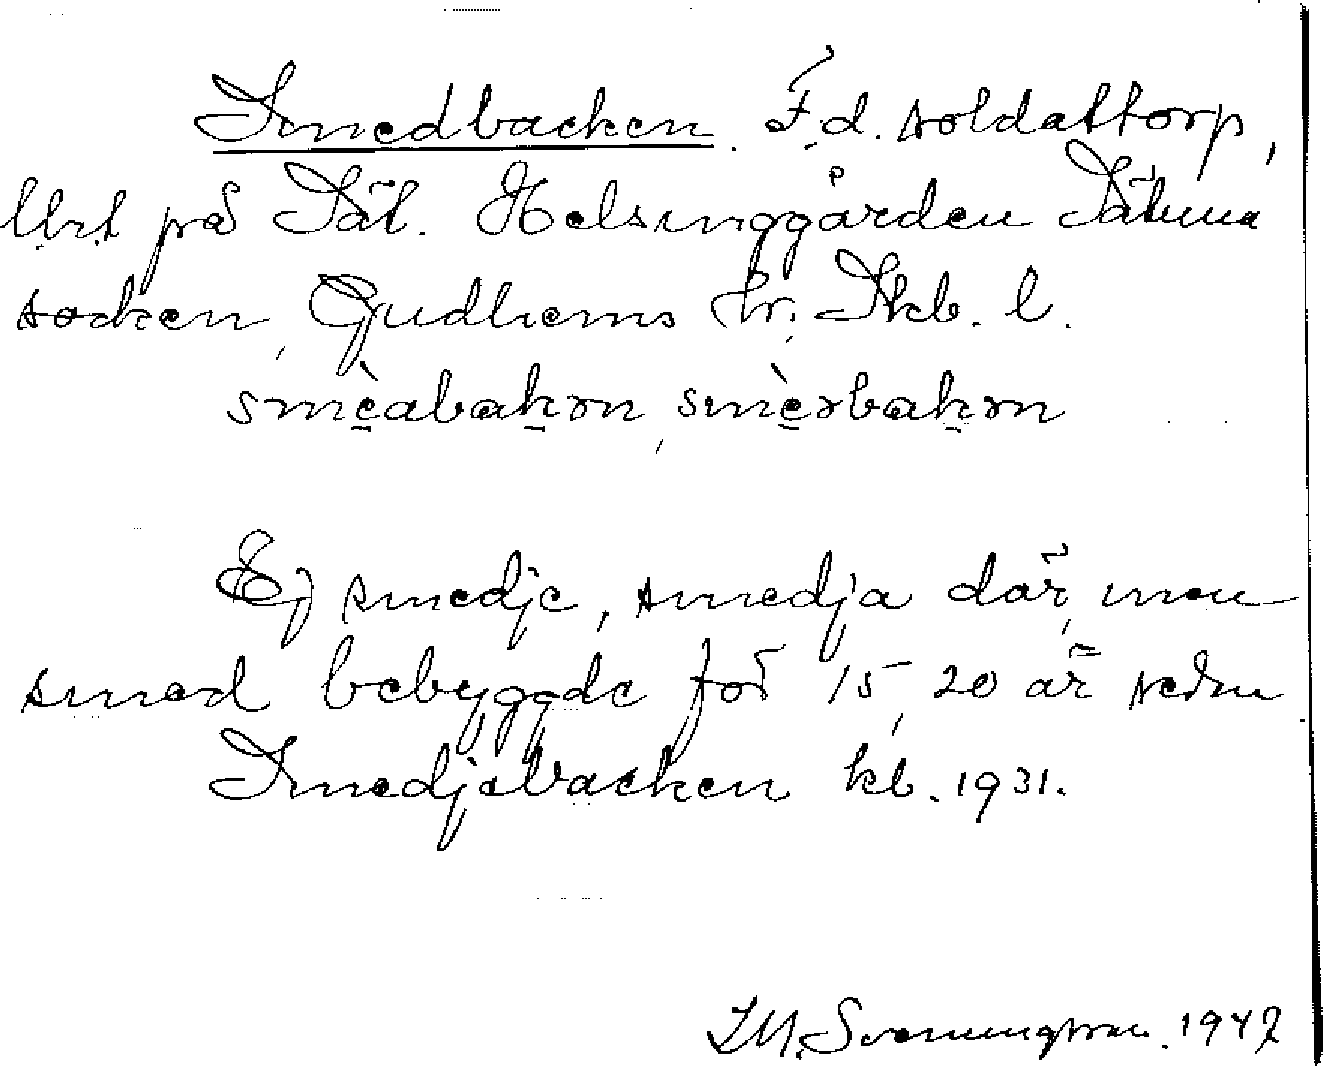 Smedbacken. F.d. soldattorp,
lht på Sät. Helsinggården Sätuna
socken, Gudhems hr. Skb. l.
smèabakən, smèəbakən
Ej smedje, smedja där, men
smed bebyggde för 15, 20 år sedan
Smedjebacken kb. 1931.
I.M. Svenungsson. 1947